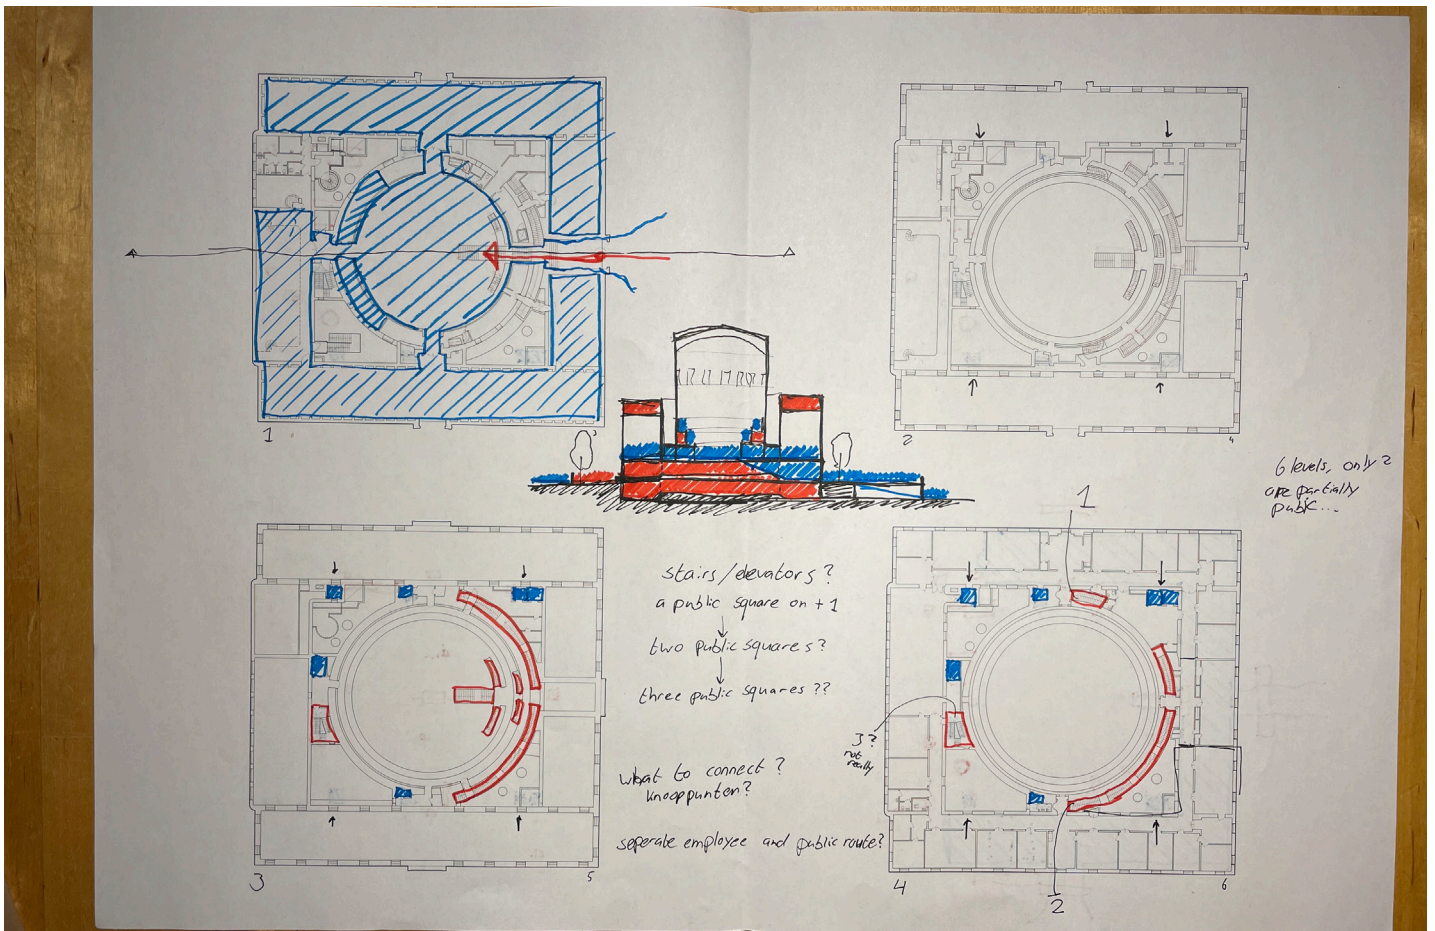 1
2
4
6 levels, only 2
are partially
public...
1
stairs/elevators?
a public square on +1
two public squares?
three public squares ??
3?
not
really
what to connect?
knooppunten?
seperate employee and public route?
3
5
4
6
2